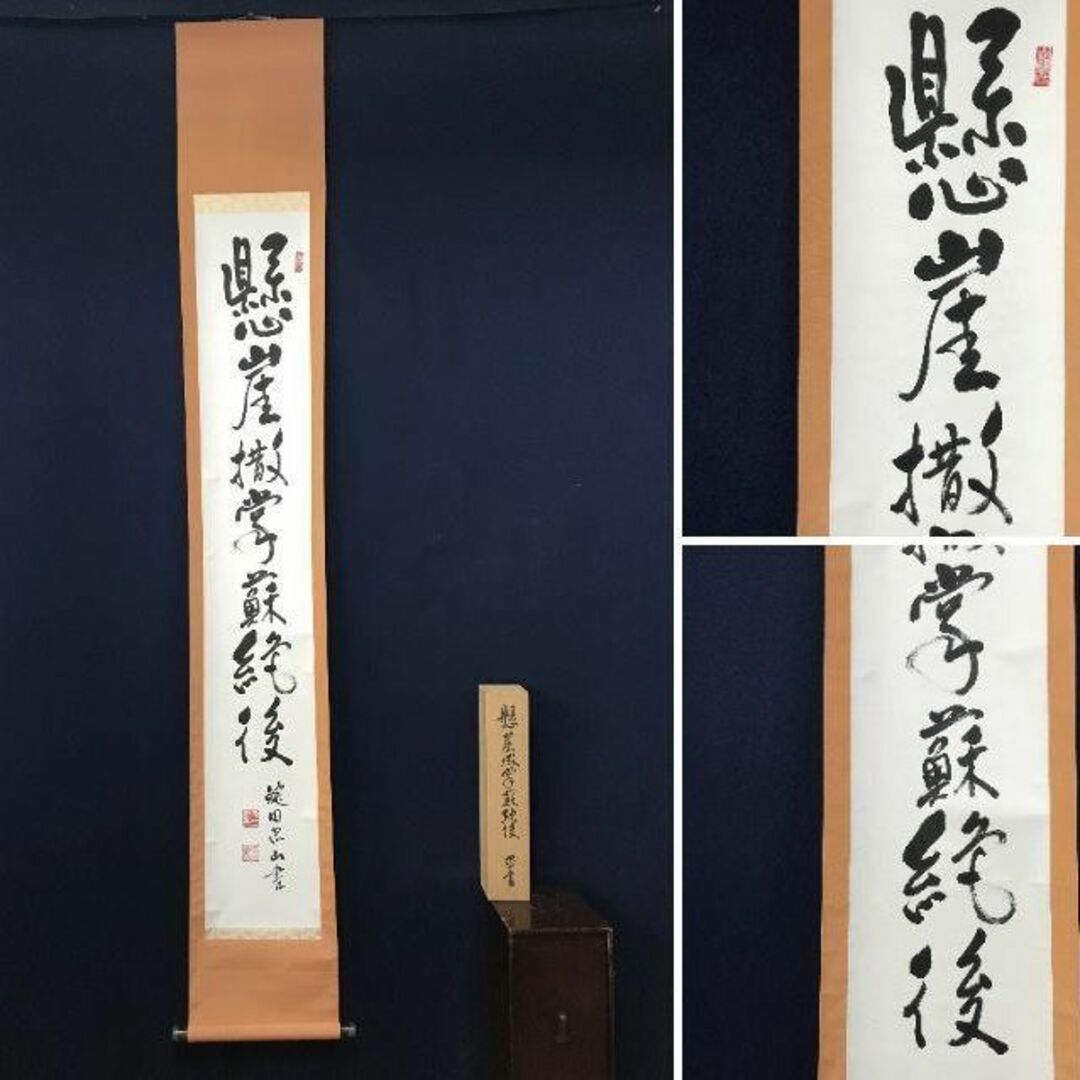 懸崖撒掌蘇絶後
山書
懸崖撒掌蘇絶後
書
懸崖撒
撒掌蘇絶後